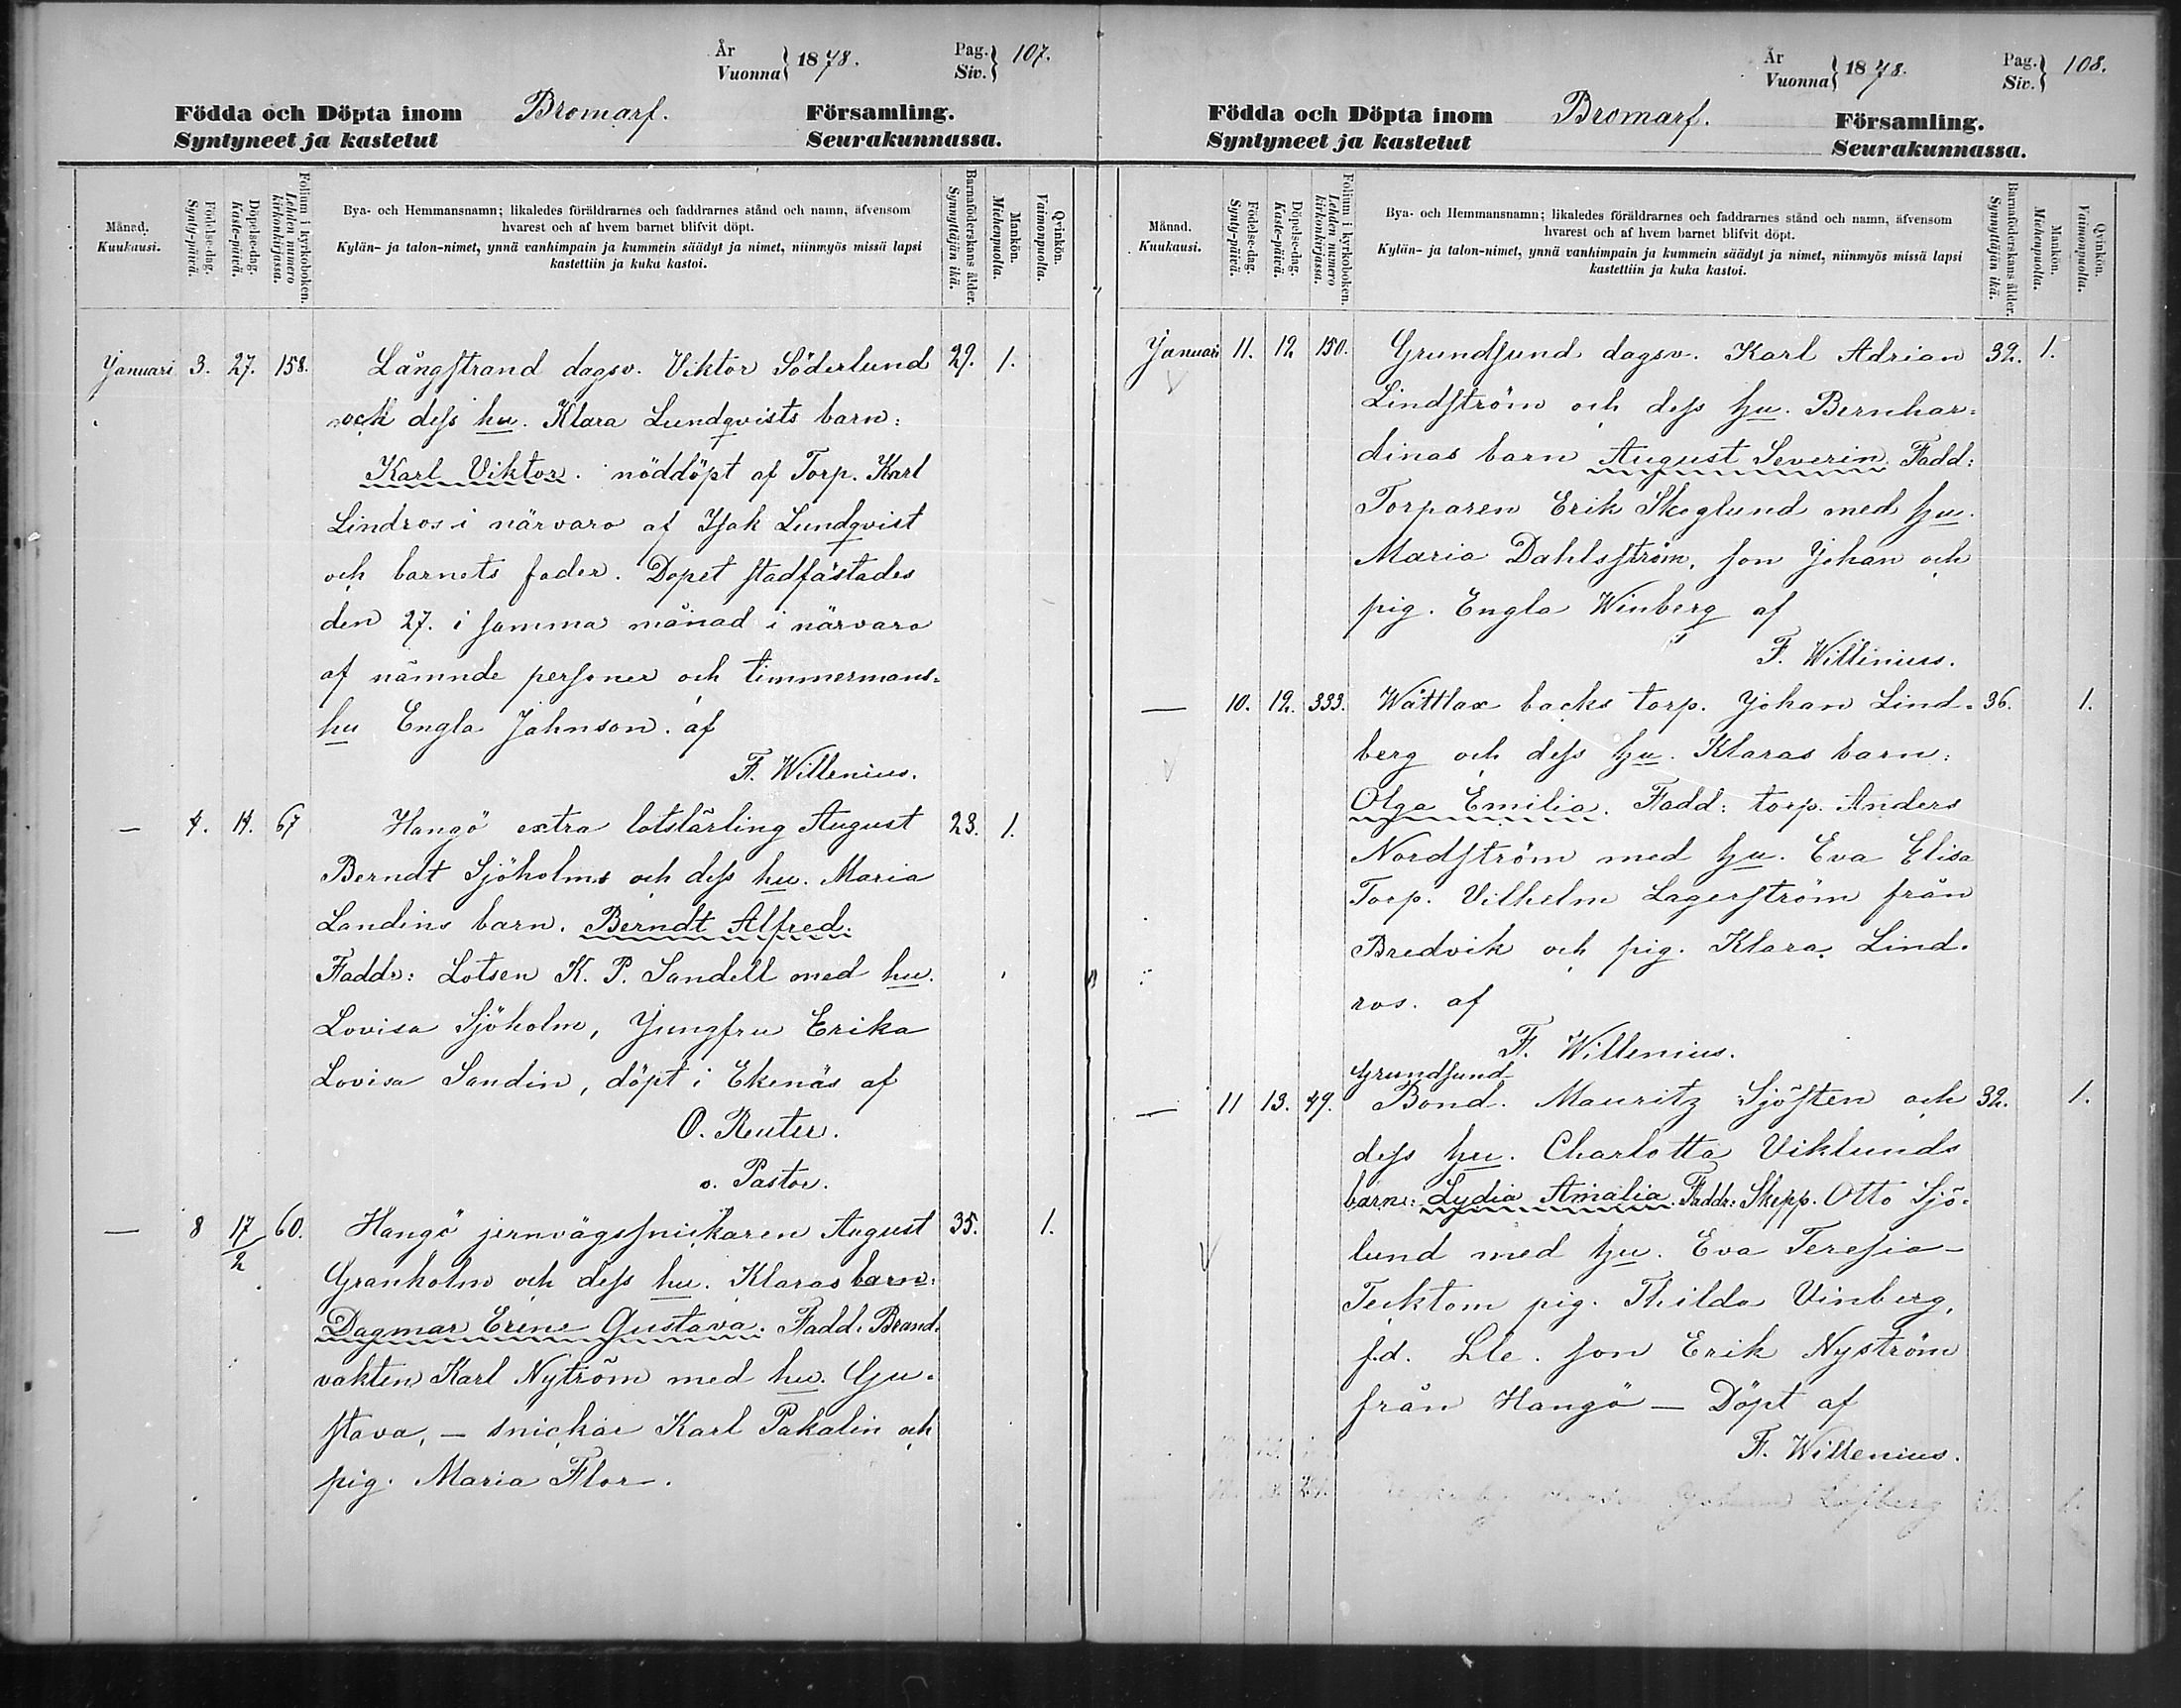 År
Vuonna } 1878.
Pag.
Siv. } 107.
Födda och Döpta inom Bromarf. Församling.
Syntyneet ja kastetut Seurakunnassa.
Månad.
Kuukausi.
Födelse-dag.
Synty-päivä.
Döpelse-dag.
Kaste-päivä.
Folium i kyrkoboken.
Lehden numero
kirkonkirjassa.
Bya- och Hemmansnamn; likaledes föräldrarnes och faddrarnes stånd och namn, äfvensom
hvarest och af hvem barnet blifvit döpt.
Kylän- ja talon-nimet, ynnä vanhimpain ja kummein säädyt ja nimet, niinmyös missä lapsi
kastettiin ja kuka kastoi.
Barnaföderskans ålder.
Synnyttäjän ikä.
Mankön.
Miehenpuolta.
Qvinkön.
Vaimonpuolta.
Januari 3. 27. 158. Långstrand dagsv. Viktor Söderlund 29. 1.
och dess hu. Klara Lundqvists barn:
Karl Viktor. nöddöpt af Torp. Karl
Lindros i närvaro af Isak Lundqvist
och barnets fader. Dopet stadfästades
den 27. i samma månad i närvaro
af nämnde personer och timmermans-
hu Engla Johnson. af
F. Willenius.
— 4. 14. 67 Hangö extra lotslärling August 23. 1.
Berndt Sjöholms och dess hu. Maria
Landins barn. Berndt Alfred.
Faddr: Lotsen K. P. Sandell med hu.
Lovisa Sjöholm, Jungfru Erika
Lovisa Sandin, döpt i Ekenäs af
O. Reuter.
v. Pastor.
— 8 17/2 60. Hangö jernvägssnickaren August 35. 1.
Granholm och dess hu. Klaras barn:
Dagmar Erene Gustava. Fadd. Brand-
vakten Karl Nytröm med hu. Gu-
stava, — snickar Karl Pakalin och
pig. Maria Flor.
År
Vuonna } 1878.
Pag.
Siv. } 108.
Födda och Döpta inom Bromarf. Församling.
Syntyneet ja kastetut Seurakunnassa.
Månad.
Kuukausi.
Födelse-dag.
Synty-päivä.
Döpelse-dag.
Kaste-päivä.
Folium i kyrkoboken.
Lehden numero
kirkonkirjassa.
Bya- och Hemmansnamn; likaledes föräldrarnes och faddrarnes stånd och namn, äfvensom
hvarest och af hvem barnet blifvit döpt.
Kylän- ja talon-nimet, ynnä vanhimpain ja kummein säädyt ja nimet, niinmyös missä lapsi
kastettiin ja kuka kastoi.
Barnaföderskans ålder.
Synnyttäjän ikä.
Mankön.
Miehenpuolta.
Qvinkön.
Vaimonpuolta.
Januari 11. 12 150. Grundsund dagsv. Karl Adrian 32. 1.
Lindström och dess hu. Bernhar-
dinas barn August Severin. Fadd:
Torparen Erik Skoglund med hu.
Maria Dahlström, son Johan och
pig. Engla Winberg af
F. Willinius.
— 10. 12. 333. Wättlax backs torp. Johan Lind- 36. 1.
berg och dess hu. Klaras barn:
Olga Emilia. Fadd: torp. Anders
Nordström med hu. Eva Elisa
Torp. Vilhelm Lagerström från
Bredvik och pig. Klara Lind-
ros. af
F. Willenius.
Grundsund
— 11 13. 49. Bond. Mauritz Sjösten och 32. 1.
dess hu. Charlotta Viklunds
barn: Lydia Amalia. Faddr: Skepp. Otto Sjö-
lund med hu. Eva Teresia —
Tecktom pig. Thilda Vinberg,
f.d. Lle. son Erik Nyström
från Hangö — Döpt af
F. Willenius.
Löfberg